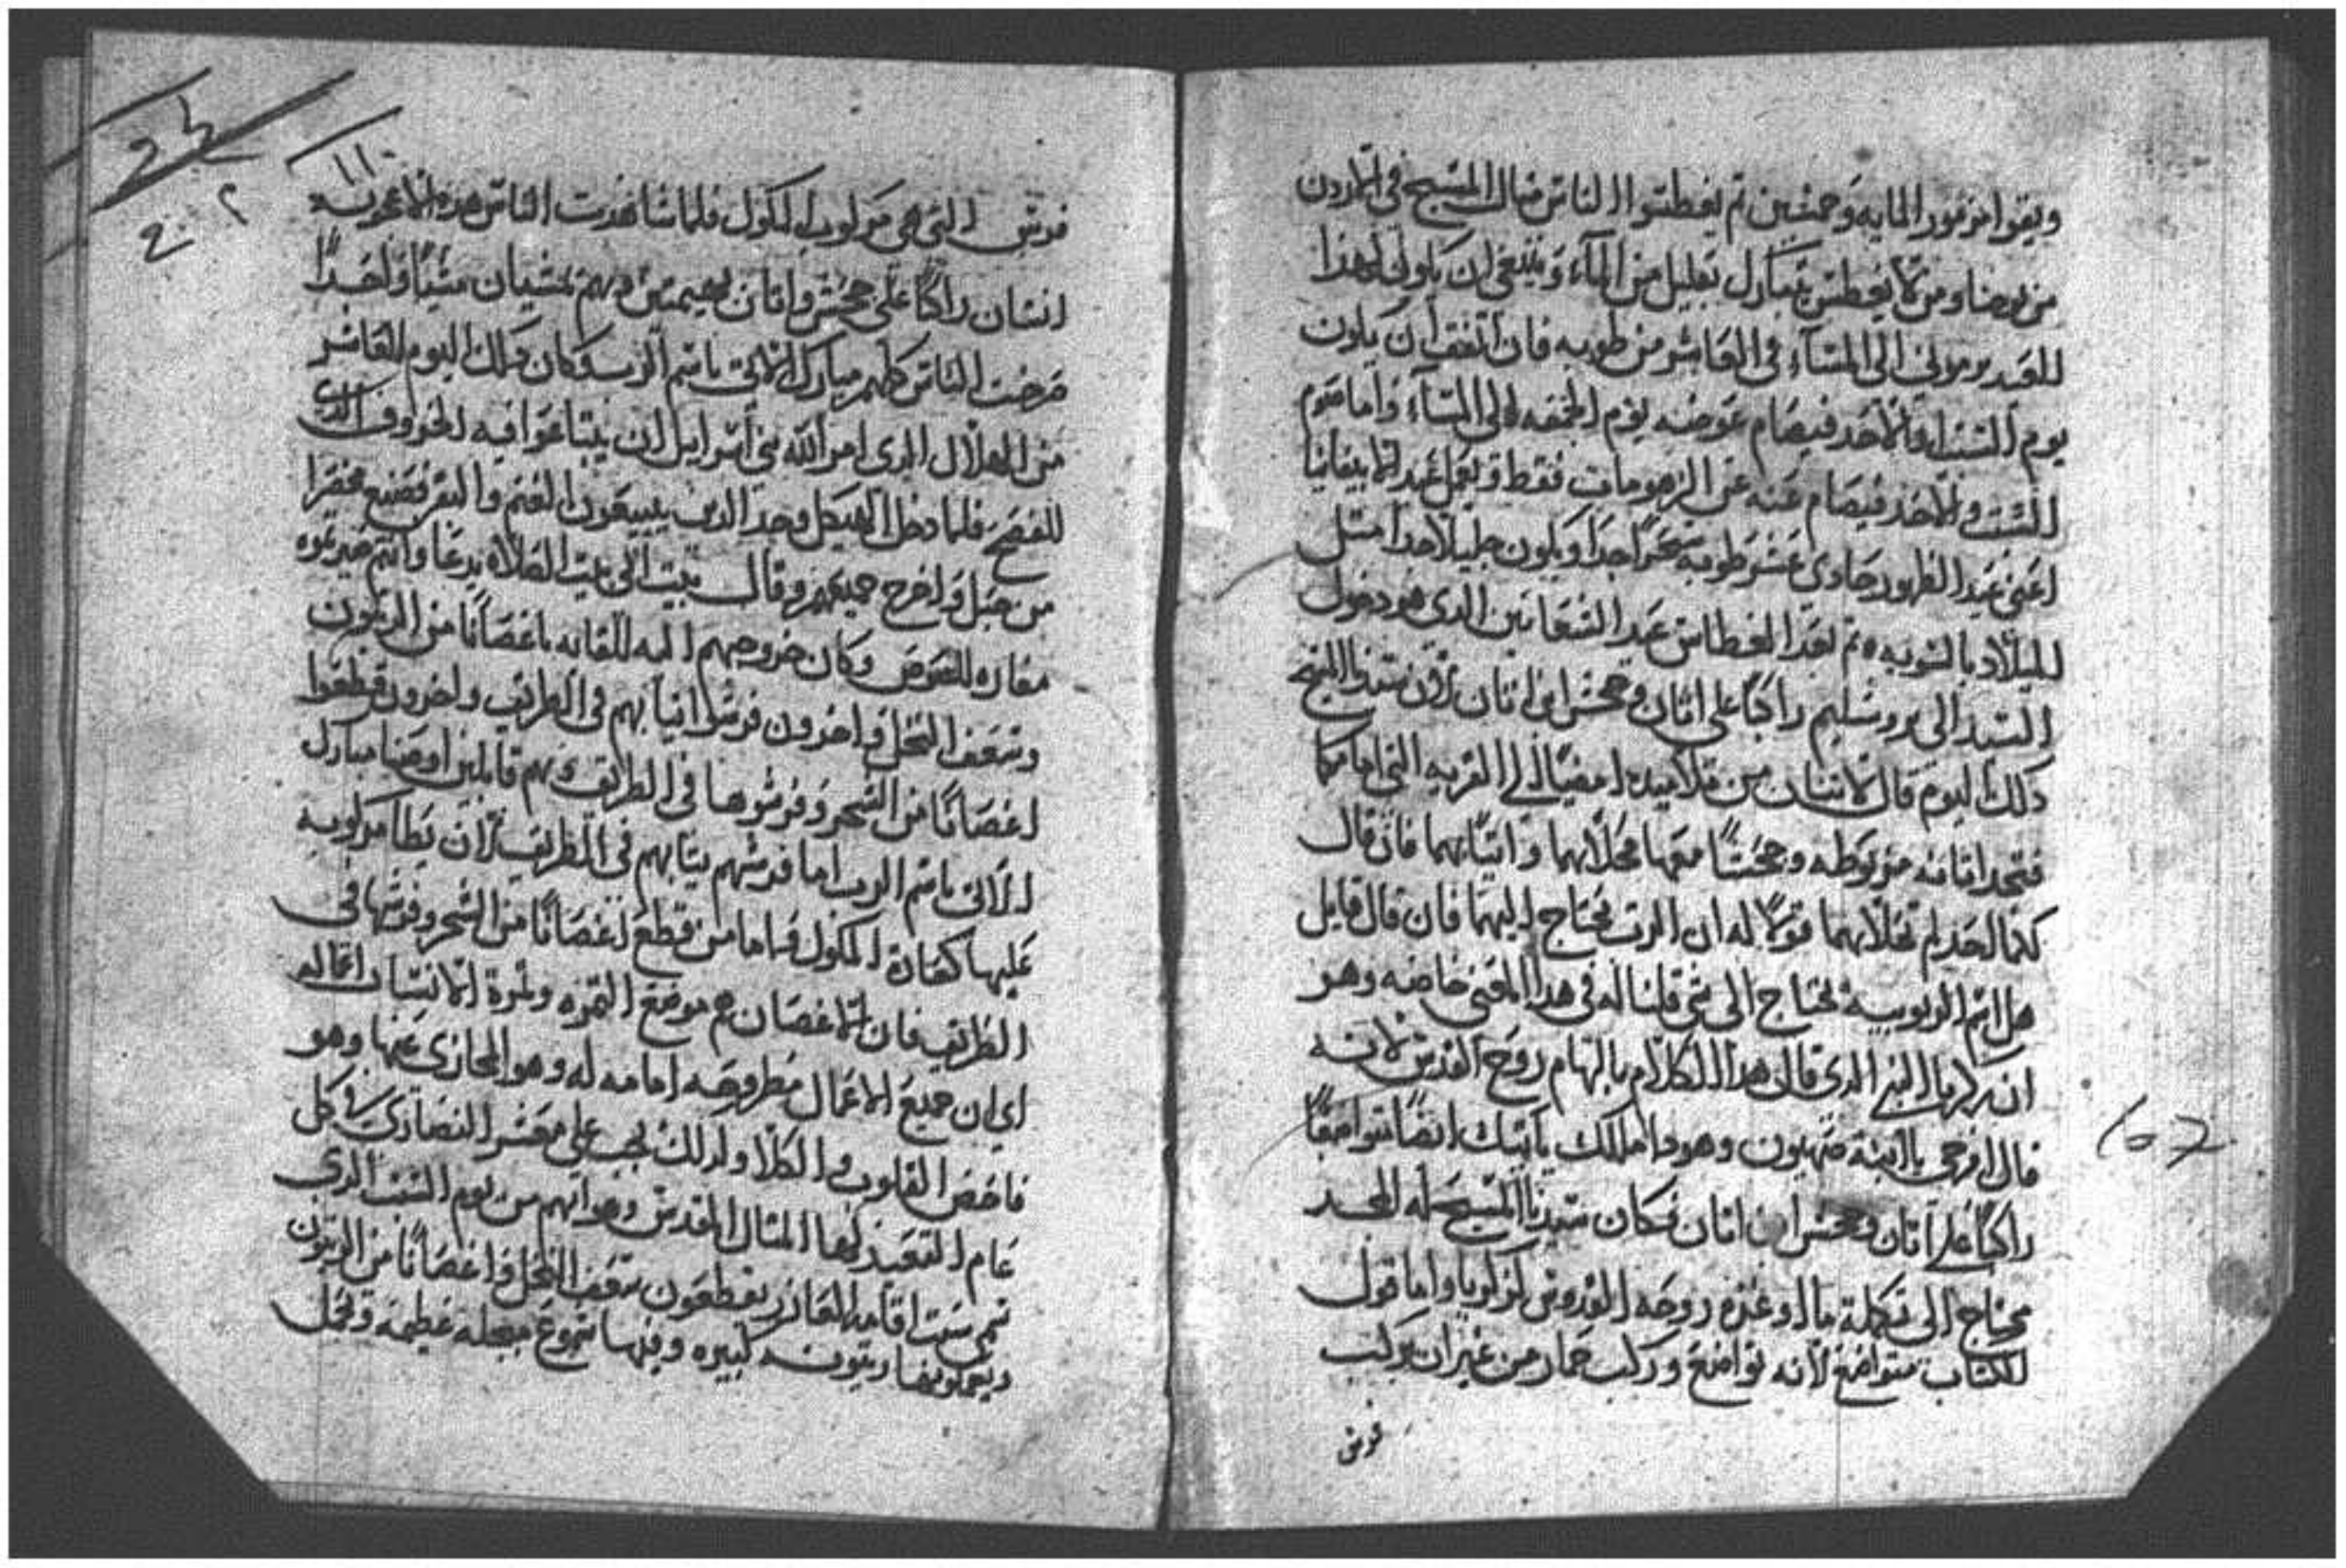 ويقروا مزمور المايه وخمسين ثم يغطسوا الناس مثال المسيح في الاردن
من يوحنا ومن لا يغطس يتبارك بقليل من الماء وينبغي ان يكون لهذا
العيد برموني الى المساء في العاشر من طوبه فان اتفق ان يكون
يوم السبت او الاحد فيصام عوضه يوم الجمعه الى المساء واما صوم
السبت والاحد فيصام عنه عن الزهومات فقط ويعمل عيد الابيفانيا
اعني عيد الظهور حادي عشر طوبه سحرا جدا ويكون جليلا جدا مثل
الميلاد بالسويه ثم بعد الغطاس عيد الشعانين الدي هو دخول
السيد الى يروشليم راكبا على اتان وجحش ابن اتان لان سيدنا المسيح
دلك اليوم قال لاتنان من تلاميده امضيا الى القريه التي امامكما
فتجدا اتانه مربوطه وجحشا معها فحلاهما واتياني بهما فان قال
لكما احد لم تحلاهما قولا له ان الرب يحتاج اليهما فان قال قايل
هل اسم الربوبيه تحتاج الى شي قلنا له في هدا المعنى خاصه وهو
ان زكريا النبي الدي قال هدا الكلام بالهام روح القدس لانه
قال افرحي يا ابنة صهيون وهودا ملكك ياتيك ايضا متواضعا
راكبا على اتان وجحش ابن اتان فكان سيدنا المسيح له المجد
محتاج الى تكملة ما اوعزه روحه القدوس لزكريا واما قول
الكتاب متواضع لانه تواضع وركب حمار من غير ان يركب
فرس
١١٠
فرس التي هي مركوب الملوك فلما شاهدت الناس هده الاعجوبه
انسان راكبا على جحش واتان بهيمتين وهم تمشيان مشيا واحدا
صرخت الناس كلهم مبارك الاتي باسم الرب وكان دلك اليوم العاشر
من الهلال الدي امر الله بني اسراييل ان يبتاعوا فيه الخروف الدي
للفصح فلما دخل الهيكل وجد الدين يبيعون الغنم والبقر فصنع مخصرا
من حبل واخرج جميعهم وقال بيت ابي بيت الصلاه يدعا وانتم صيرتموه
مغاره للصوص وكان خروجهم اليه للقايه باغصانا من الزيتون
وسعف النخل واخرون فرشوا تيابهم في الطريق واخرون قطعوا
اغصانا من الشجر وفرشوها في الطريق وهم قايلين اوصنا مبارك
الاتي باسم الرب اما فرشهم تيابهم في الطريق لان يطا مركوبه
عليها كعادة الملوك واما من قطع اغصانا من الشجر وفرشها في
الطريق فان الاغصان هم موضع التمره وتمرة الانسان اعماله
اي ان جميع الاعمال مطروحه امامه له وهو المجازي عنها وهو
فاحص القلوب والكلا ولدلك يجب على معشر النصارى في كل
عام التعيد لهدا المثال المقدس وهو انهم من يوم السبت الدي
تمي سبت اقامه العازر يقطعون سعف النخل واغصانا من الزيتون
ويعملو فيها زيتونه كبيره وفيها شموع مبجله عظيمه وتحمل